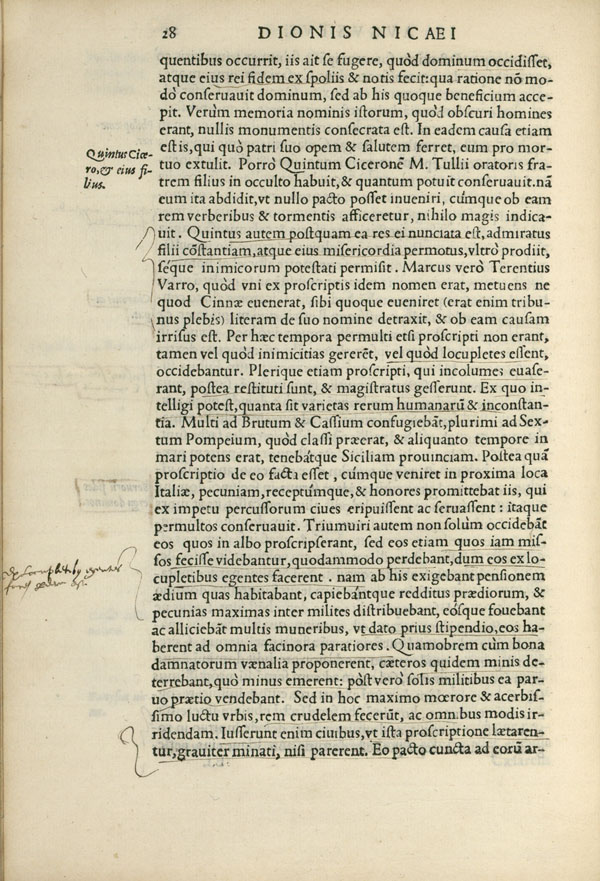 28 DIONIS NICAEI
quentibus occurrit, iis ait se fugere, quòd dominum occidisset,
atque eius rei fidem ex spoliis & notis fecit: qua ratione nō mo-
dò conseruauit dominum, sed ab his quoque beneficium acce-
pit. Verùm memoria nominis istorum, quòd obscuri homines
erant, nullis monumentis consecrata est. In eadem causa etiam
est is, qui quò patri suo opem & salutem ferret, eum pro mor-
Quintus Cice-
ro, & eius fi-
lius.
tuo extulit. Porrò Quintum Ciceronē M. Tullii oratoris fra-
trem filius in occulto habuit, & quantum potuit conseruauit. nā
eum ita abdidit, vt nullo pacto posset inueniri, cúmque ob eam
rem verberibus & tormentis afficeretur, nihilo magis indica-
uit. Quintus autem postquam ea res ei nunciata est, admiratus
filii cōstantiam, atque eius misericordia permotus, vltrò prodiit,
séque inimicorum potestati permisit. Marcus verò Terentius
Varro, quòd vni ex proscriptis idem nomen erat, metuens ne
quod Cinnæ euenerat, sibi quoque eueniret (erat enim tribu-
nus plebis) literam de suo nomine detraxit, & ob eam causam
irrisus est. Per hæc tempora permulti etsi proscripti non erant,
tamen vel quòd inimicitias gererēt, vel quòd locupletes essent,
occidebantur. Plerique etiam proscripti, qui incolumes euase-
rant, postea restituti sunt, & magistratus gesserunt. Ex quo in-
telligi potest, quanta sit varietas rerum humanarū & inconstan-
tia. Multi ad Brutum & Cassium confugiebāt, plurimi ad Sex-
tum Pompeium, quòd classi præerat, & aliquanto tempore in
mari potens erat, tenebátque Siciliam prouinciam. Postea quā
proscriptio de eo facta esset, cúmque veniret in proxima loca
Italiæ, pecuniam, receptúmque, & honores promittebat iis, qui
ex impetu percussorum ciues eripuissent ac seruassent: itaque
permultos conseruauit. Triumuiri autem non solùm occidebāt
eos quos in albo proscripserant, sed eos etiam quos iam mis-
sos fecisse videbantur, quodammodo perdebant, dum eos ex lo-
cupletibus egentes facerent. nam ab his exigebant pensionem
ædium quas habitabant, capiebántque redditus prædiorum, &
pecunias maximas inter milites distribuebant, eósque fouebant
ac alliciebāt multis muneribus, vt dato prius stipendio, eos ha-
berent ad omnia facinora paratiores. Quamobrem cùm bona
damnatorum vænalia proponerent, cæteros quidem minis de-
terrebant, quò minus emerent: pòst verò solis militibus ea par-
uo prætio vendebant. Sed in hoc maximo mœrore & acerbis-
simo luctu vrbis, rem crudelem fecerūt, ac omnibus modis ir-
ridendam. Iusserunt enim ciuibus, vt ista proscriptione lætaren-
tur, grauiter minati, nisi parerent. Eo pacto cuncta ad eorū ar-